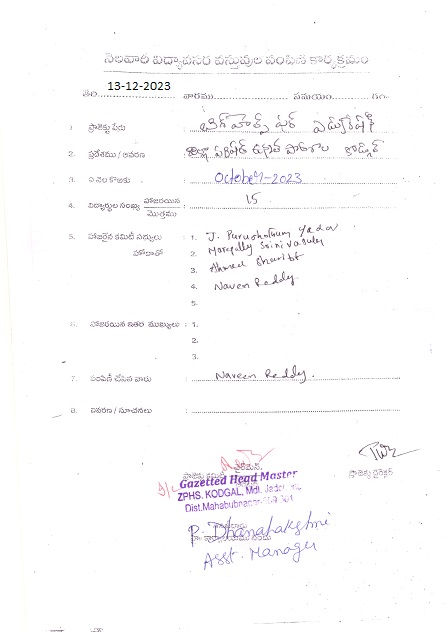 నెలవారి విద్యావసర వస్తువుల పంపిణి కార్యక్రమం
తేది 13-12-2023 వారము సమయం గం.
1. ప్రాజెక్టు పేరు : బిగ్ హెల్ప్ ఫర్ ఎడ్యుకేషన్
2. ప్రదేశము / ఆవరణ : జిల్లా పరిషత్ ఉన్నత పాఠశాల కొడ్గల్
3. ఏ నెల కొఱకు : October-2023
4. విద్యార్థుల సంఖ్య హాజరయిన / మొత్తము : 15
5. హాజరైన కమిటీ సభ్యులు హోదాతో : 1. J. Purushotham Yadav
2. Marepally Srinivasulu
3. Ahmed Sharif
4. Naven Reddy
5.
6. హాజరయిన ఇతర ముఖ్యులు : 1.
2.
3.
7. పంపిణీ చేసిన వారు : Naveen Reddy.
8. వివరణ / సూచనలు :
ప్రాజెక్టు కమిటి చైర్మెన్. ప్రాజెక్టు డైరెక్టర్
Gazetted Head Master
ZPHS. KODGAL, Mdl. Jadcherla
Dist.Mahabubnagar
P. Dhanalakshmi
Asst. Manager